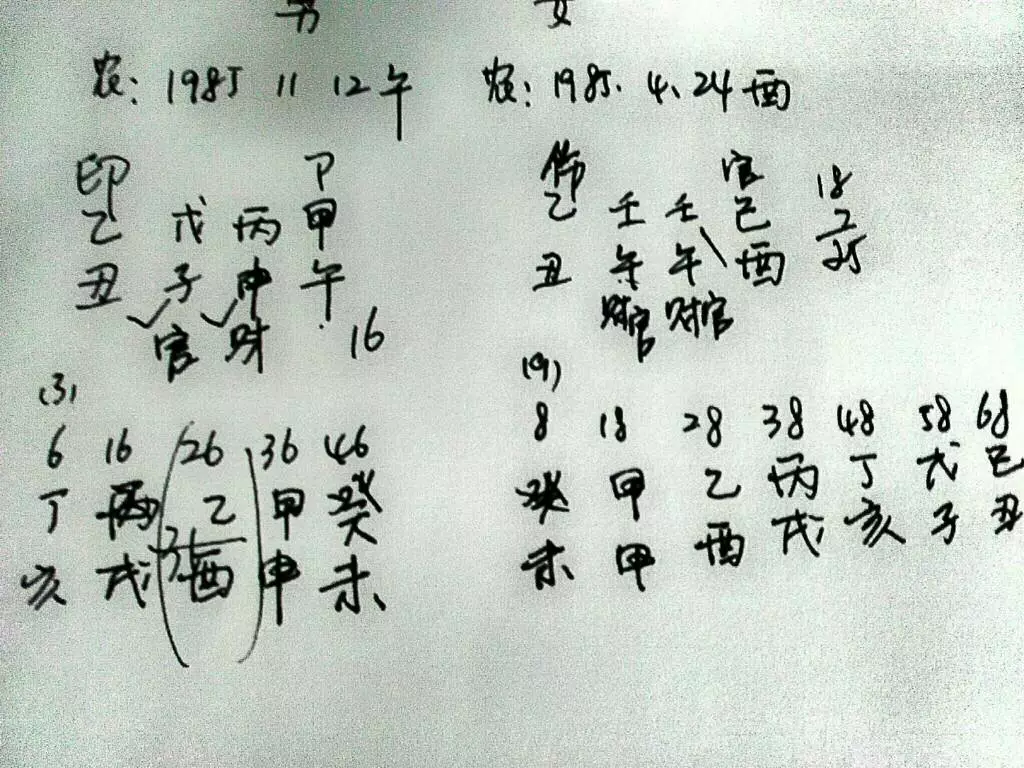 男 女
农: 1985 11 12午 农: 1985.4.24酉
印 P 伤 官 18
乙 戊 丙 甲 乙 壬 壬 己 7
丑 子 申 午 丑 午 午 酉 25
官 财 16 财官 财官
(3) (9)
6 16 26 36 46 8 18 28 38 48 58 68
丁 丙 乙 甲 癸 癸 甲 乙 丙 丁 戊 己
31
亥 戌 酉 申 未 未 甲 酉 戌 亥 子 丑